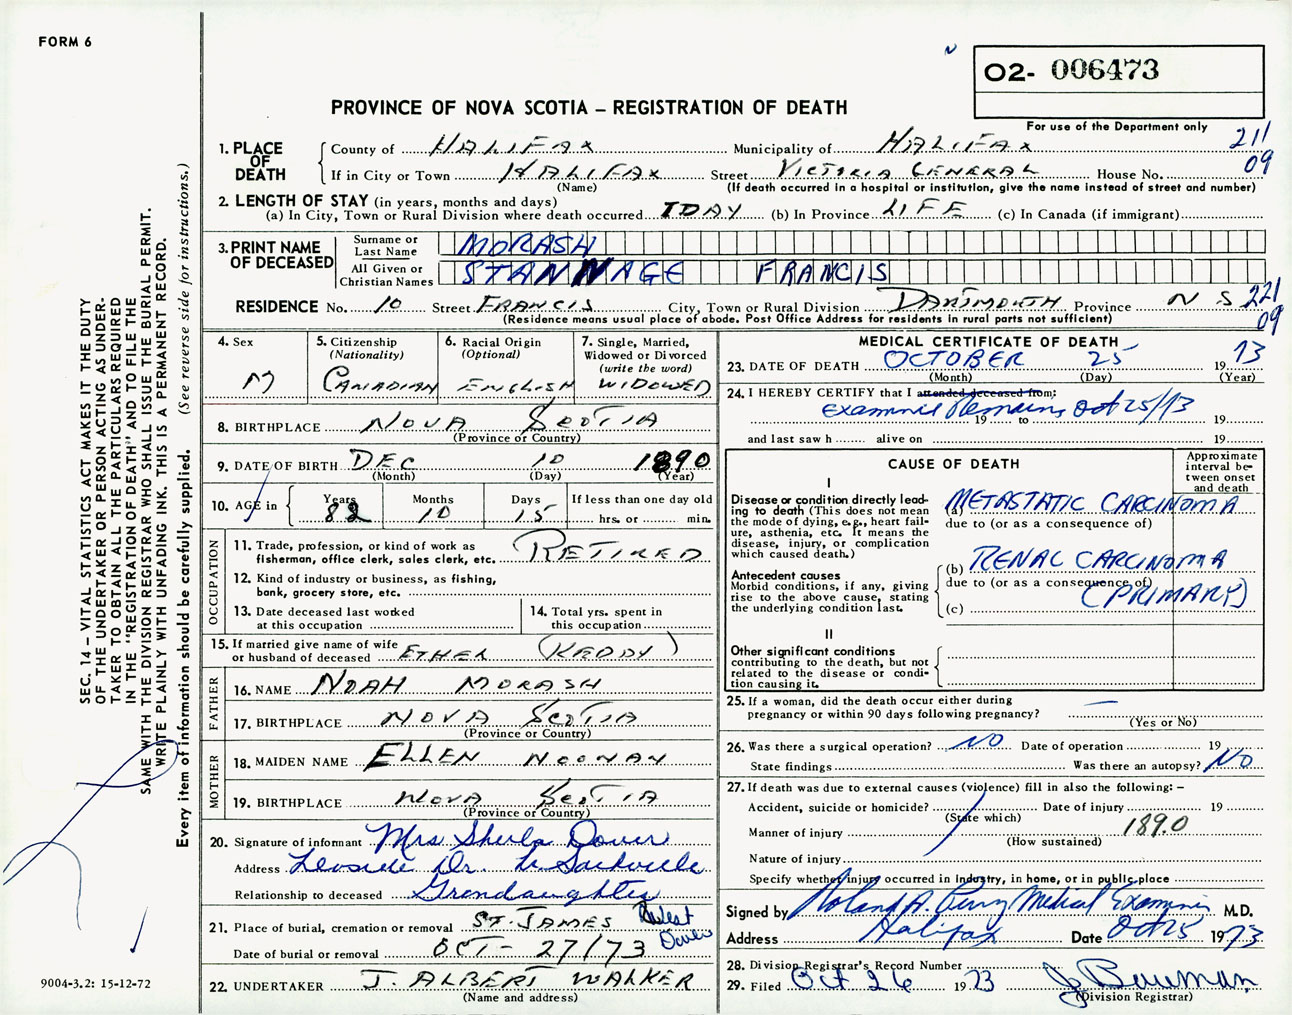 FORM 6
O2- 006473
PROVINCE OF NOVA SCOTIA – REGISTRATION OF DEATH
For use of the Department only
211
09
1. PLACE OF DEATH
County of HALIFAX Municipality of HALIFAX
If in City or Town HALIFAX Street VICTORIA GENERAL House No.
(Name) (If death occurred in a hospital or institution, give the name instead of street and number)
2. LENGTH OF STAY (in years, months and days)
(a) In City, Town or Rural Division where death occurred 1 DAY (b) In Province LIFE (c) In Canada (if immigrant)
3. PRINT NAME OF DECEASED
Surname or Last Name MORASH
All Given or Christian Names STANNAGE FRANCIS
RESIDENCE No. 10 Street FRANCIS City, Town or Rural Division DARTMOUTH Province N S
221
09
(Residence means usual place of abode. Post Office Address for residents in rural parts not sufficient)
4. Sex
M
5. Citizenship
(Nationality)
CANADIAN
6. Racial Origin
(Optional)
ENGLISH
7. Single, Married,
Widowed or Divorced
(write the word)
WIDOWED
8. BIRTHPLACE NOVA SCOTIA
(Province or Country)
9. DATE OF BIRTH DEC 10 1890
(Month) (Day) (Year)
10. AGE in
Years Months Days If less than one day old
82 10 15 hrs. or min.
OCCUPATION
11. Trade, profession, or kind of work as
fisherman, office clerk, sales clerk, etc. RETIRED
12. Kind of industry or business, as fishing,
bank, grocery store, etc.
13. Date deceased last worked
at this occupation
14. Total yrs. spent in
this occupation
15. If married give name of wife
or husband of deceased ETHEL (KEDDY)
FATHER
16. NAME NOAH MORASH
17. BIRTHPLACE NOVA SCOTIA
(Province or Country)
MOTHER
18. MAIDEN NAME ELLEN NOONAN
19. BIRTHPLACE NOVA SCOTIA
(Province or Country)
20. Signature of informant Mrs Sheila Dover
Address Leaside Dr. Sackville
Relationship to deceased Grandaughter
21. Place of burial, cremation or removal ST. JAMES West Dover
Date of burial or removal OCT - 27/73
22. UNDERTAKER J. ALBERT WALKER
(Name and address)
MEDICAL CERTIFICATE OF DEATH
23. DATE OF DEATH OCTOBER 25 1973
(Month) (Day) (Year)
24. I HEREBY CERTIFY that I attended deceased from:
Examined Remains Oct 25/73
19 to 19
and last saw h alive on 19
CAUSE OF DEATH
Approximate interval between onset and death
I
Disease or condition directly leading to death (This does not mean the mode of dying, e.g., heart failure, asthenia, etc. It means the disease, injury, or complication which caused death.)
(a) METASTATIC CARCINOMA
due to (or as a consequence of)
Antecedent causes
Morbid conditions, if any, giving rise to the above cause, stating the underlying condition last.
(b) RENAL CARCINOMA
due to (or as a consequence of)
(PRIMARY)
(c)
II
Other significant conditions
contributing to the death, but not
related to the disease or condition causing it.
25. If a woman, did the death occur either during
pregnancy or within 90 days following pregnancy? —
(Yes or No)
26. Was there a surgical operation? NO Date of operation 19
State findings Was there an autopsy? NO
27. If death was due to external causes (violence) fill in also the following: –
Accident, suicide or homicide? Date of injury 19
(State which)
Manner of injury 1890
(How sustained)
Nature of injury
Specify whether injury occurred in industry, in home, or in public place
Signed by Roland A. Perry Medical Examiner M.D.
Address Halifax Date Oct 25 1973
28. Division Registrar's Record Number
29. Filed Oct 26 1973 J Bauman
(Division Registrar)
SEC. 14 – VITAL STATISTICS ACT MAKES IT THE DUTY
OF THE UNDERTAKER OR PERSON ACTING AS UNDER-
TAKER TO OBTAIN ALL THE PARTICULARS REQUIRED
IN THE "REGISTRATION OF DEATH" AND TO FILE THE
SAME WITH THE DIVISION REGISTRAR WHO SHALL ISSUE THE BURIAL PERMIT.
WRITE PLAINLY WITH UNFADING INK. THIS IS A PERMANENT RECORD.
Every item of information should be carefully supplied. (See reverse side for instructions.)
9004-3.2: 15-12-72